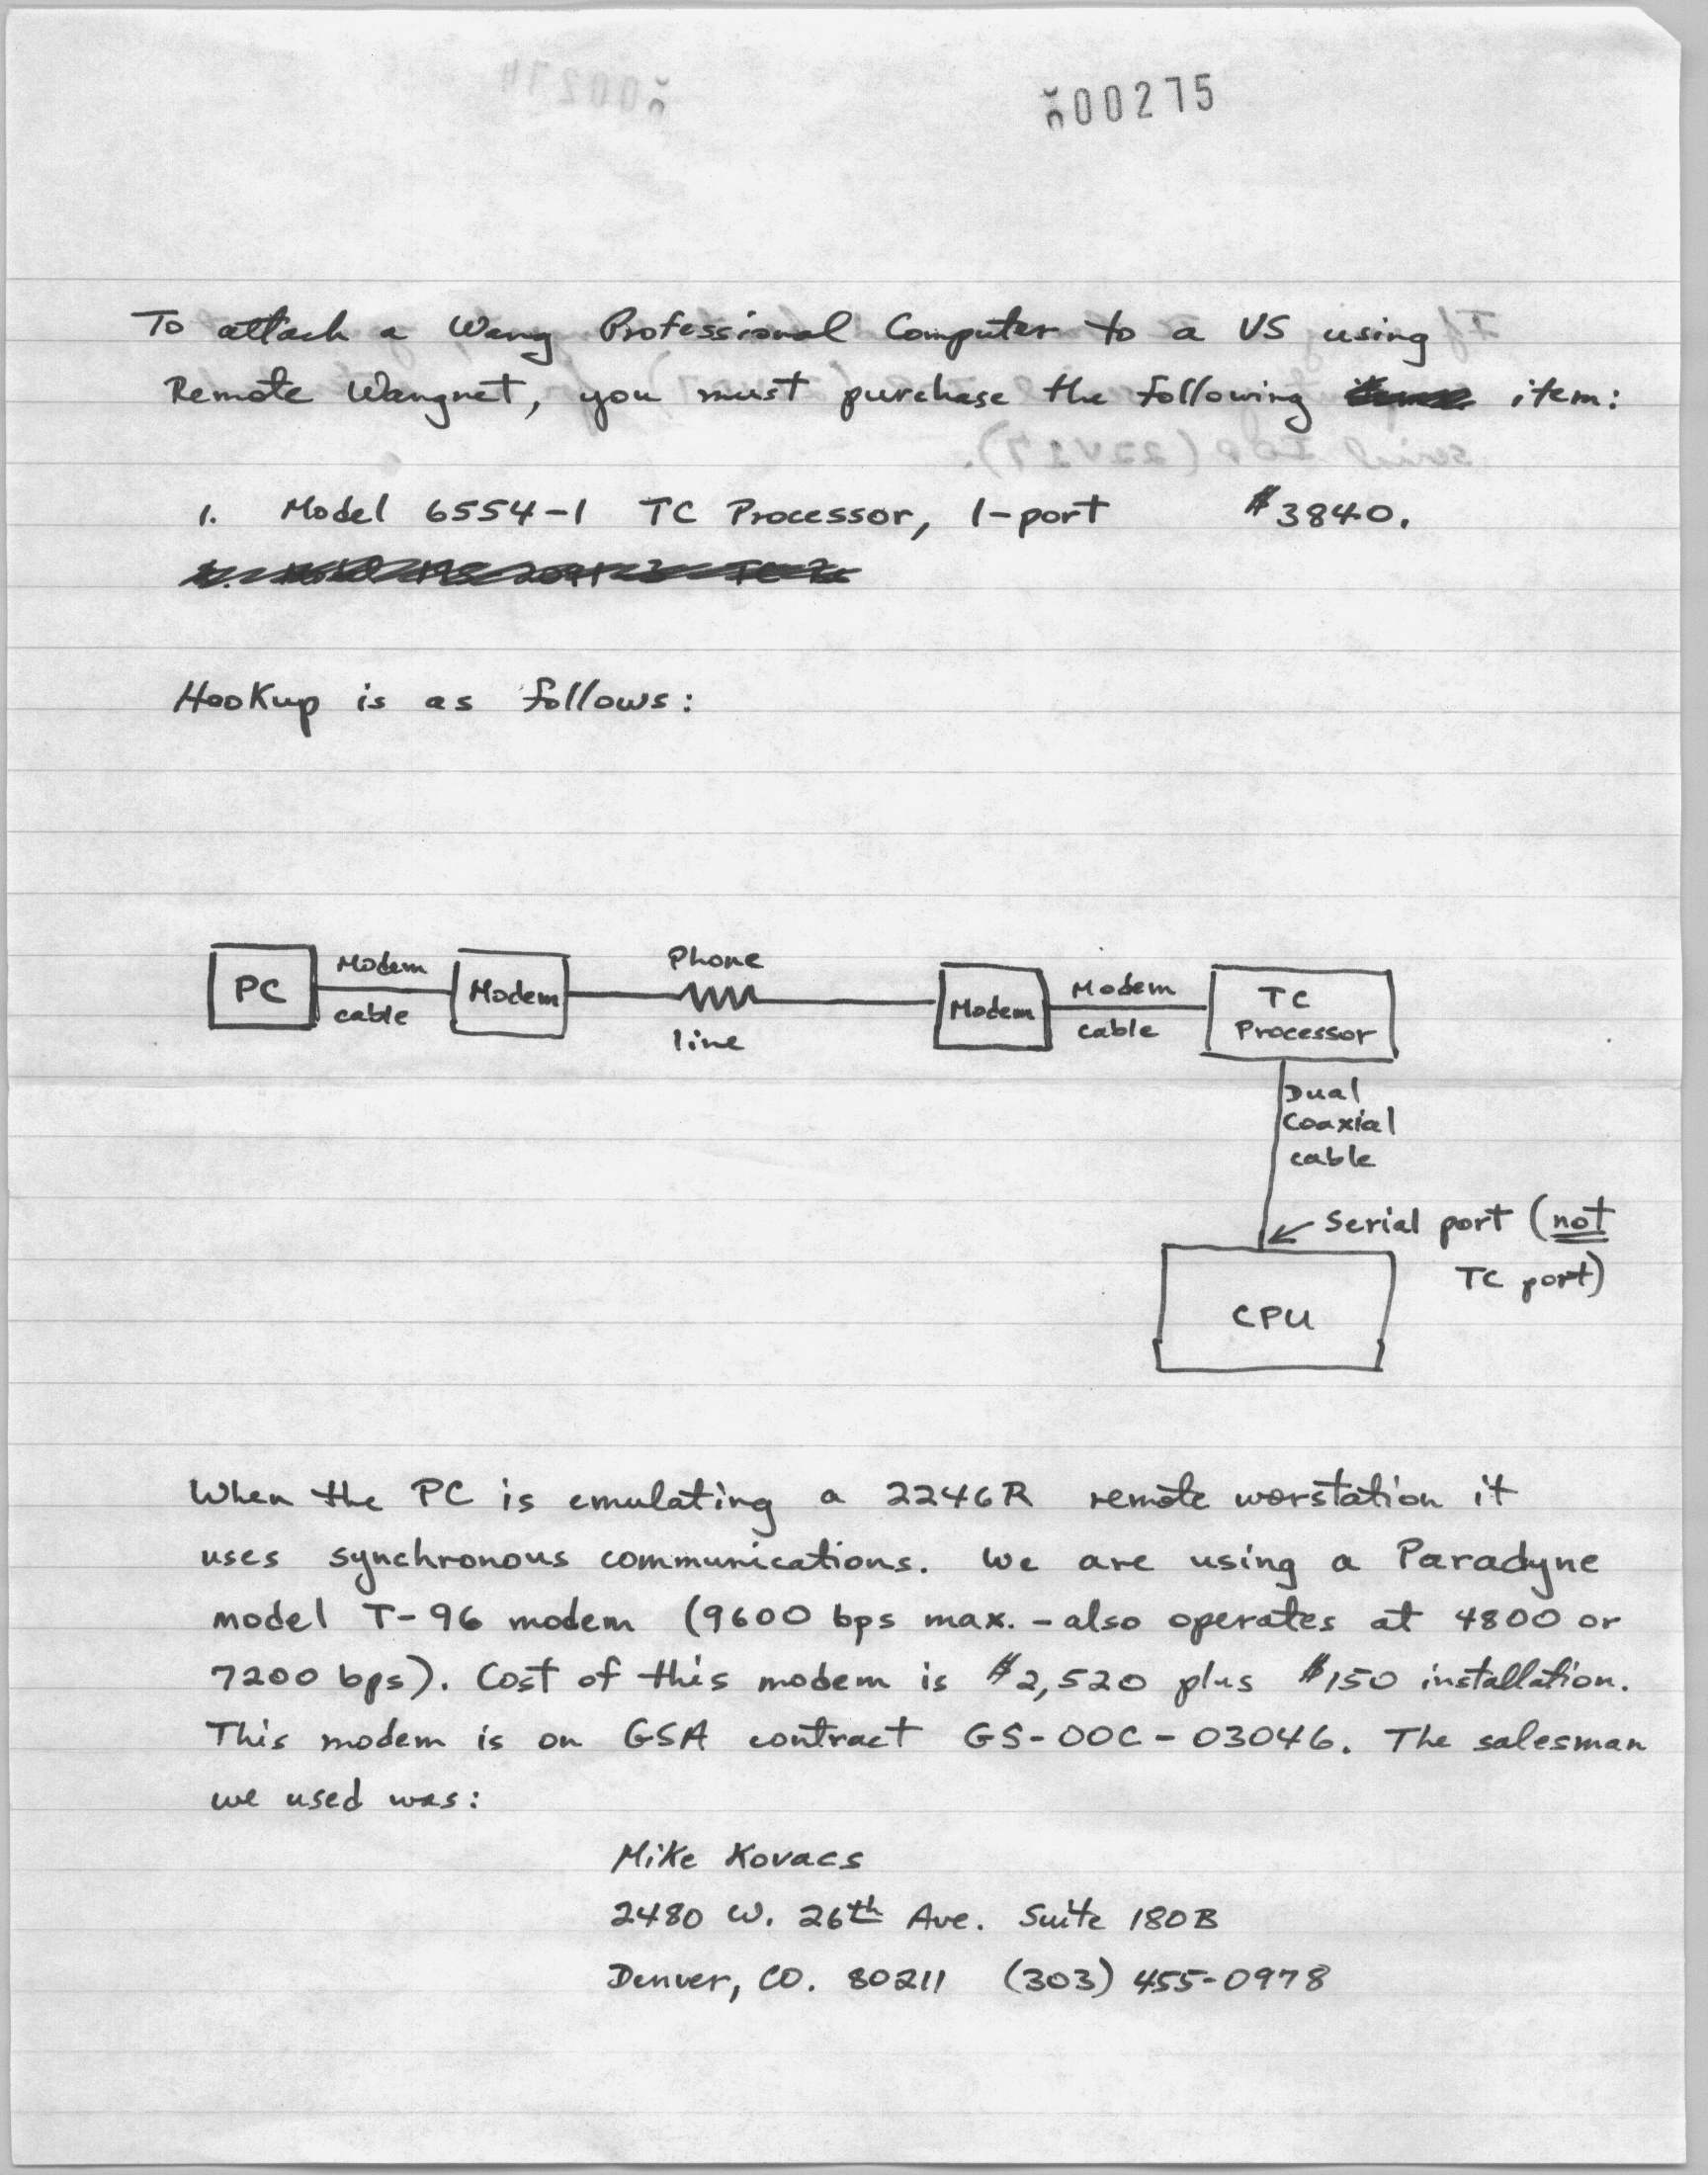 00275
To attach a Wang Professional Computer to a VS using
Remote Wangnet, you must purchase the following item:
1. Model 6554-1 TC Processor, 1-port $3840.
Hookup is as follows:
PC
Modem
cable
Modem
Phone
line
Modem
Modem
cable
TC
Processor
Dual
Coaxial
cable
Serial port (not
TC port)
CPU
When the PC is emulating a 2246R remote worstation it
uses synchronous communications. We are using a Paradyne
model T-96 modem (9600 bps max. - also operates at 4800 or
7200 bps). Cost of this modem is $2,520 plus $150 installation.
This modem is on GSA contract GS-00C-03046. The salesman
we used was:
Mike Kovacs
2480 W. 26th Ave. Suite 180B
Denver, CO. 80211 (303) 455-0978